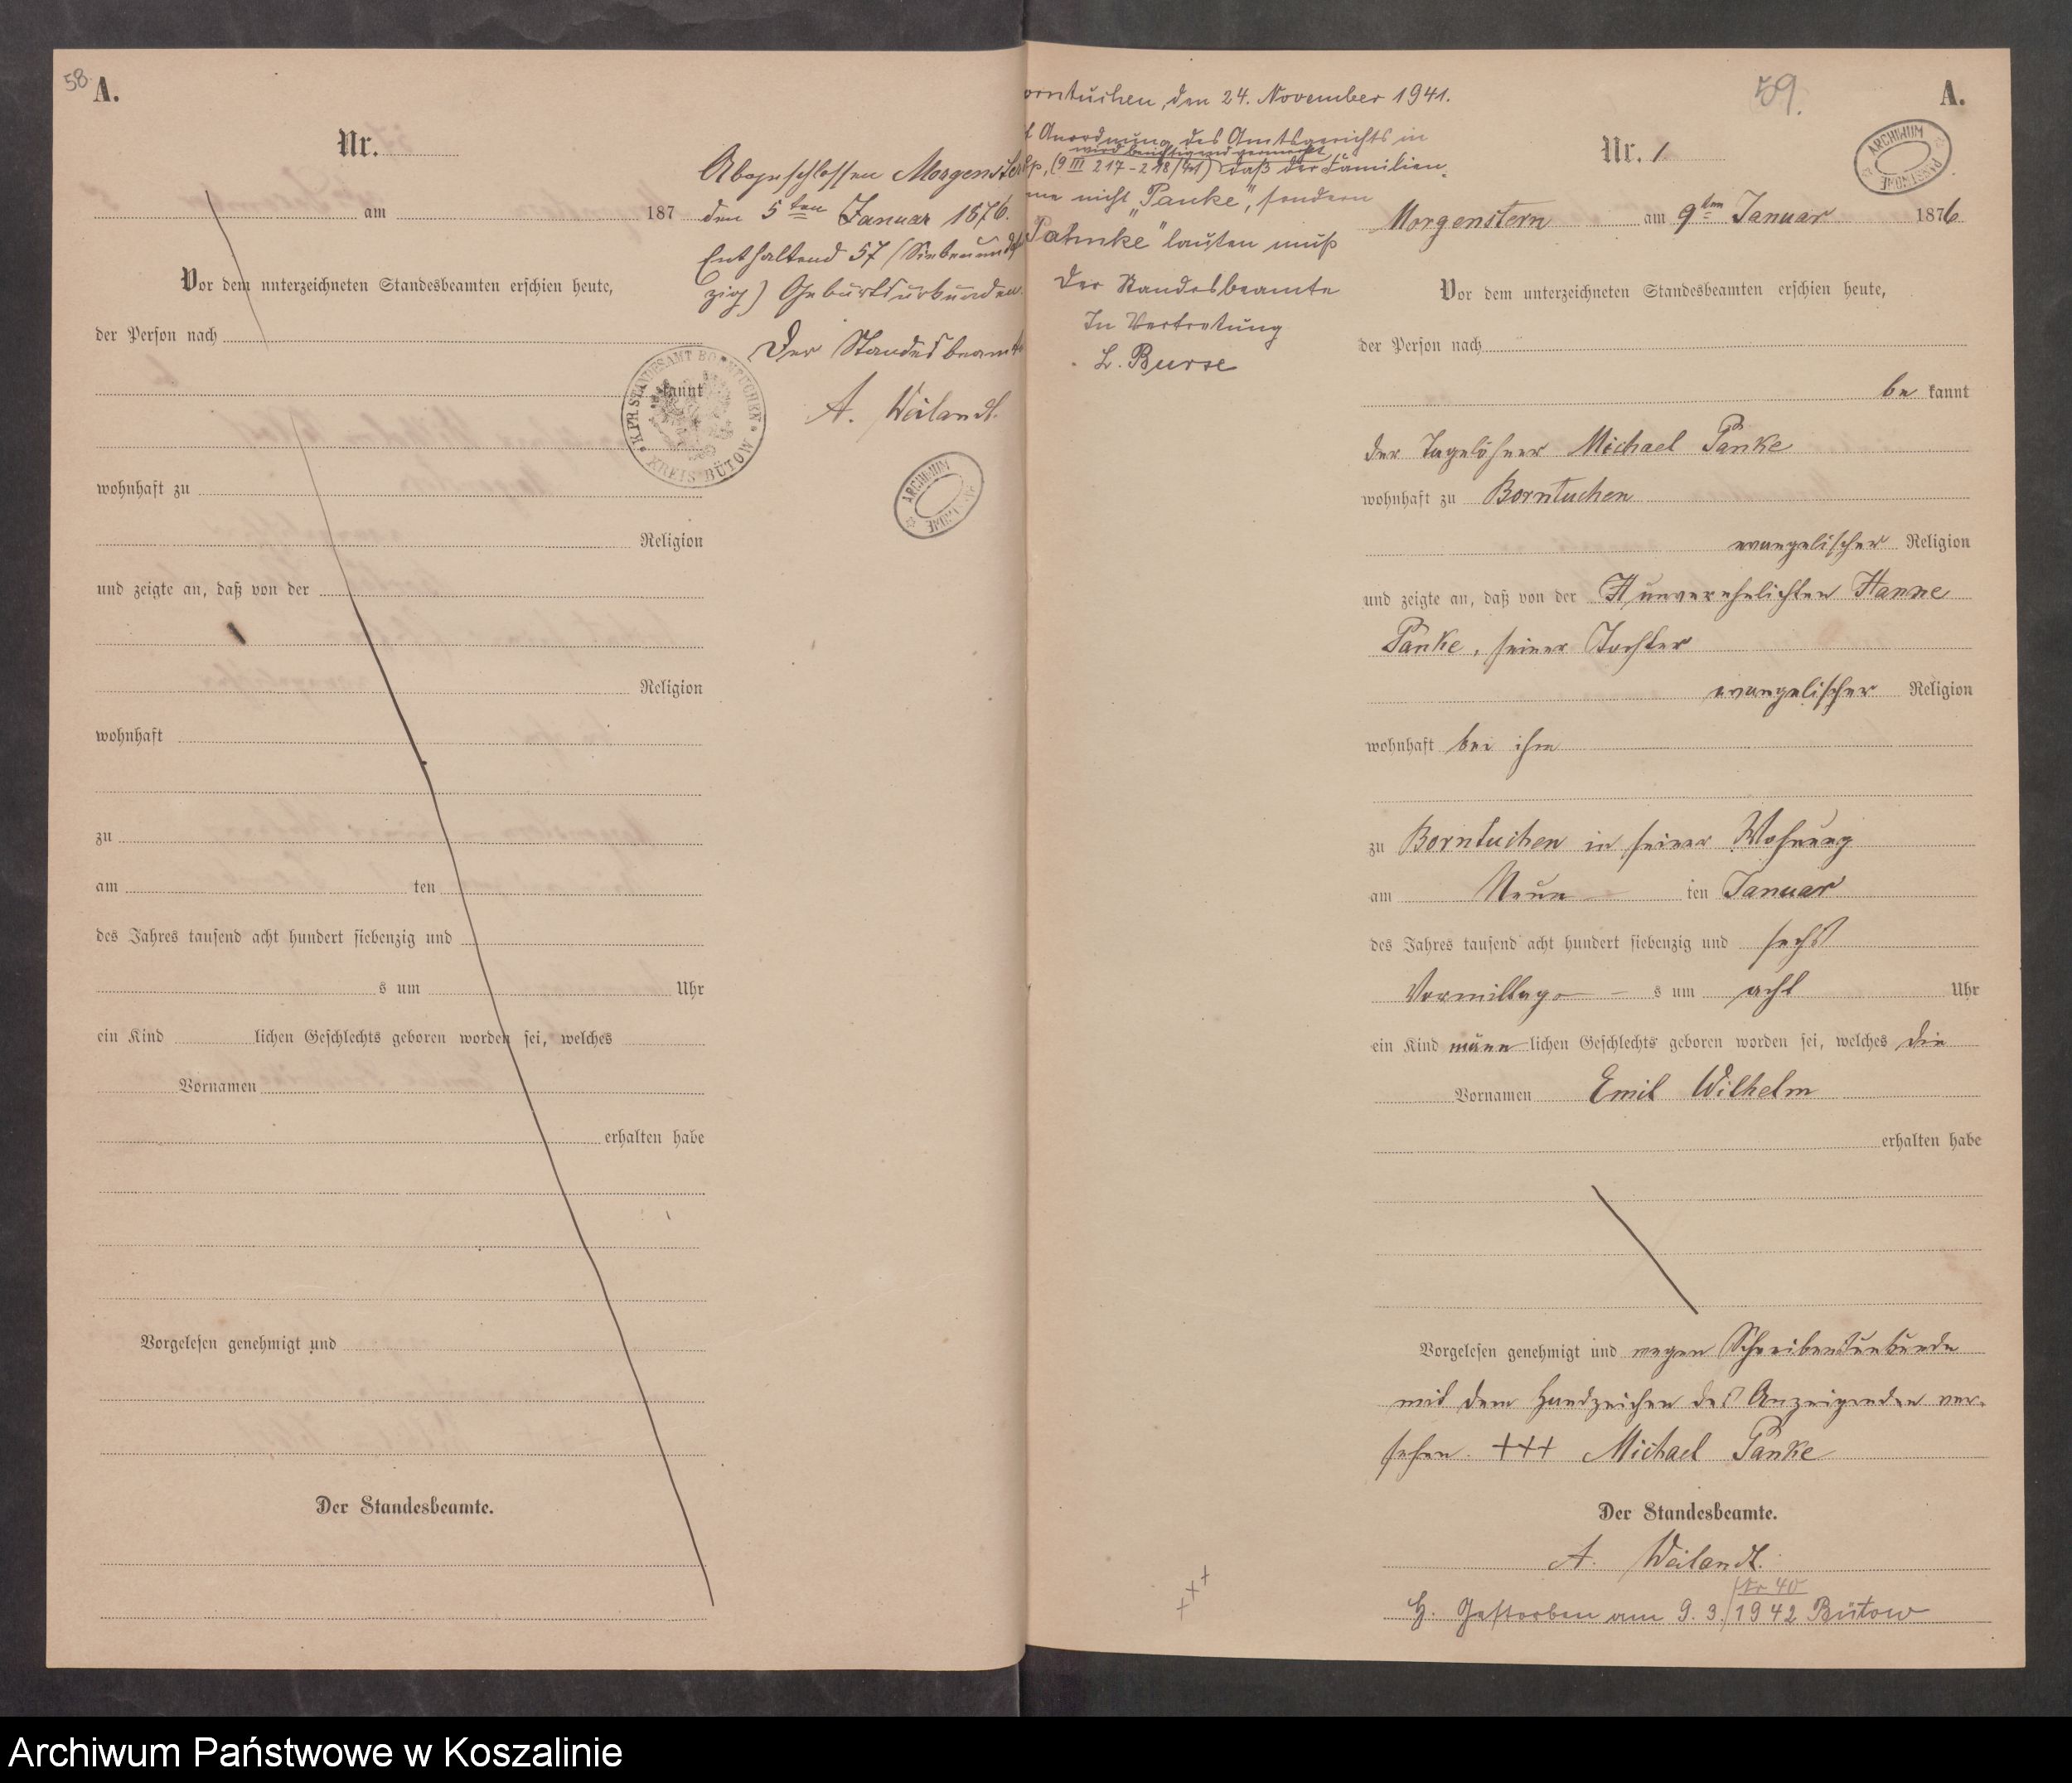 58.
A.
Nr.
am 187
Vor dem unterzeichneten Standesbeamten erschien heute,
der Person nach
kannt
wohnhaft zu
Religion
und zeigte an, daß von der
Religion
wohnhaft
zu
am ten
des Jahres tausend acht hundert siebenzig und
s um Uhr
ein Kind lichen Geschlechts geboren worden sei, welches
Vornamen
erhalten habe
Vorgelesen genehmigt und
Der Standesbeamte.
Abgeschlossen Morgenster
den 5ten Januar 1876.
Enthaltend 57 (Siebenundf
zig) Geburtsurkunden.
Der Standesbeamte
A. Weilandt.
K. PR. STANDESAMT BORNTUCHEN
KREIS BÜTOW
ARCHIWUM PAŃSTWOWE
orntuchen, den 24. November 1941.
f Anordnung des Amtsgerichts in
wird berichtigend vermerkt
lp, (9 III 217-218/41) daß der Familien-
me nicht „Panke“, sondern
Pahnke“ lauten muß
Der Standesbeamte
In Vertretung
L. Burse
59.
A.
ARCHIWUM PAŃSTWOWE
Nr. 1
Morgenstern am 9ten Januar 1876
Vor dem unterzeichneten Standesbeamten erschien heute,
der Person nach
be kannt
der Tagelöhner Michael Panke
wohnhaft zu Borntuchen
evangelischer Religion
und zeigte an, daß von der unverehelichten Hanne
Panke, seiner Tochter
evangelischer Religion
wohnhaft bei ihm
zu Borntuchen in seiner Wohnung
am Neun ten Januar
des Jahres tausend acht hundert siebenzig und sechs
Vormittag s um acht Uhr
ein Kind männ lichen Geschlechts geboren worden sei, welches die
Vornamen Emil Wilhelm
erhalten habe
Vorgelesen genehmigt und wegen Schreibensunkunde
mit dem Handzeichen des Anzeigenden ver-
sehen. +++ Michael Panke
Der Standesbeamte.
A. Weilandt.
Nr 40
H. Gestorben am 9.3./1942 Bütow
+++
Archiwum Państwowe w Koszalinie